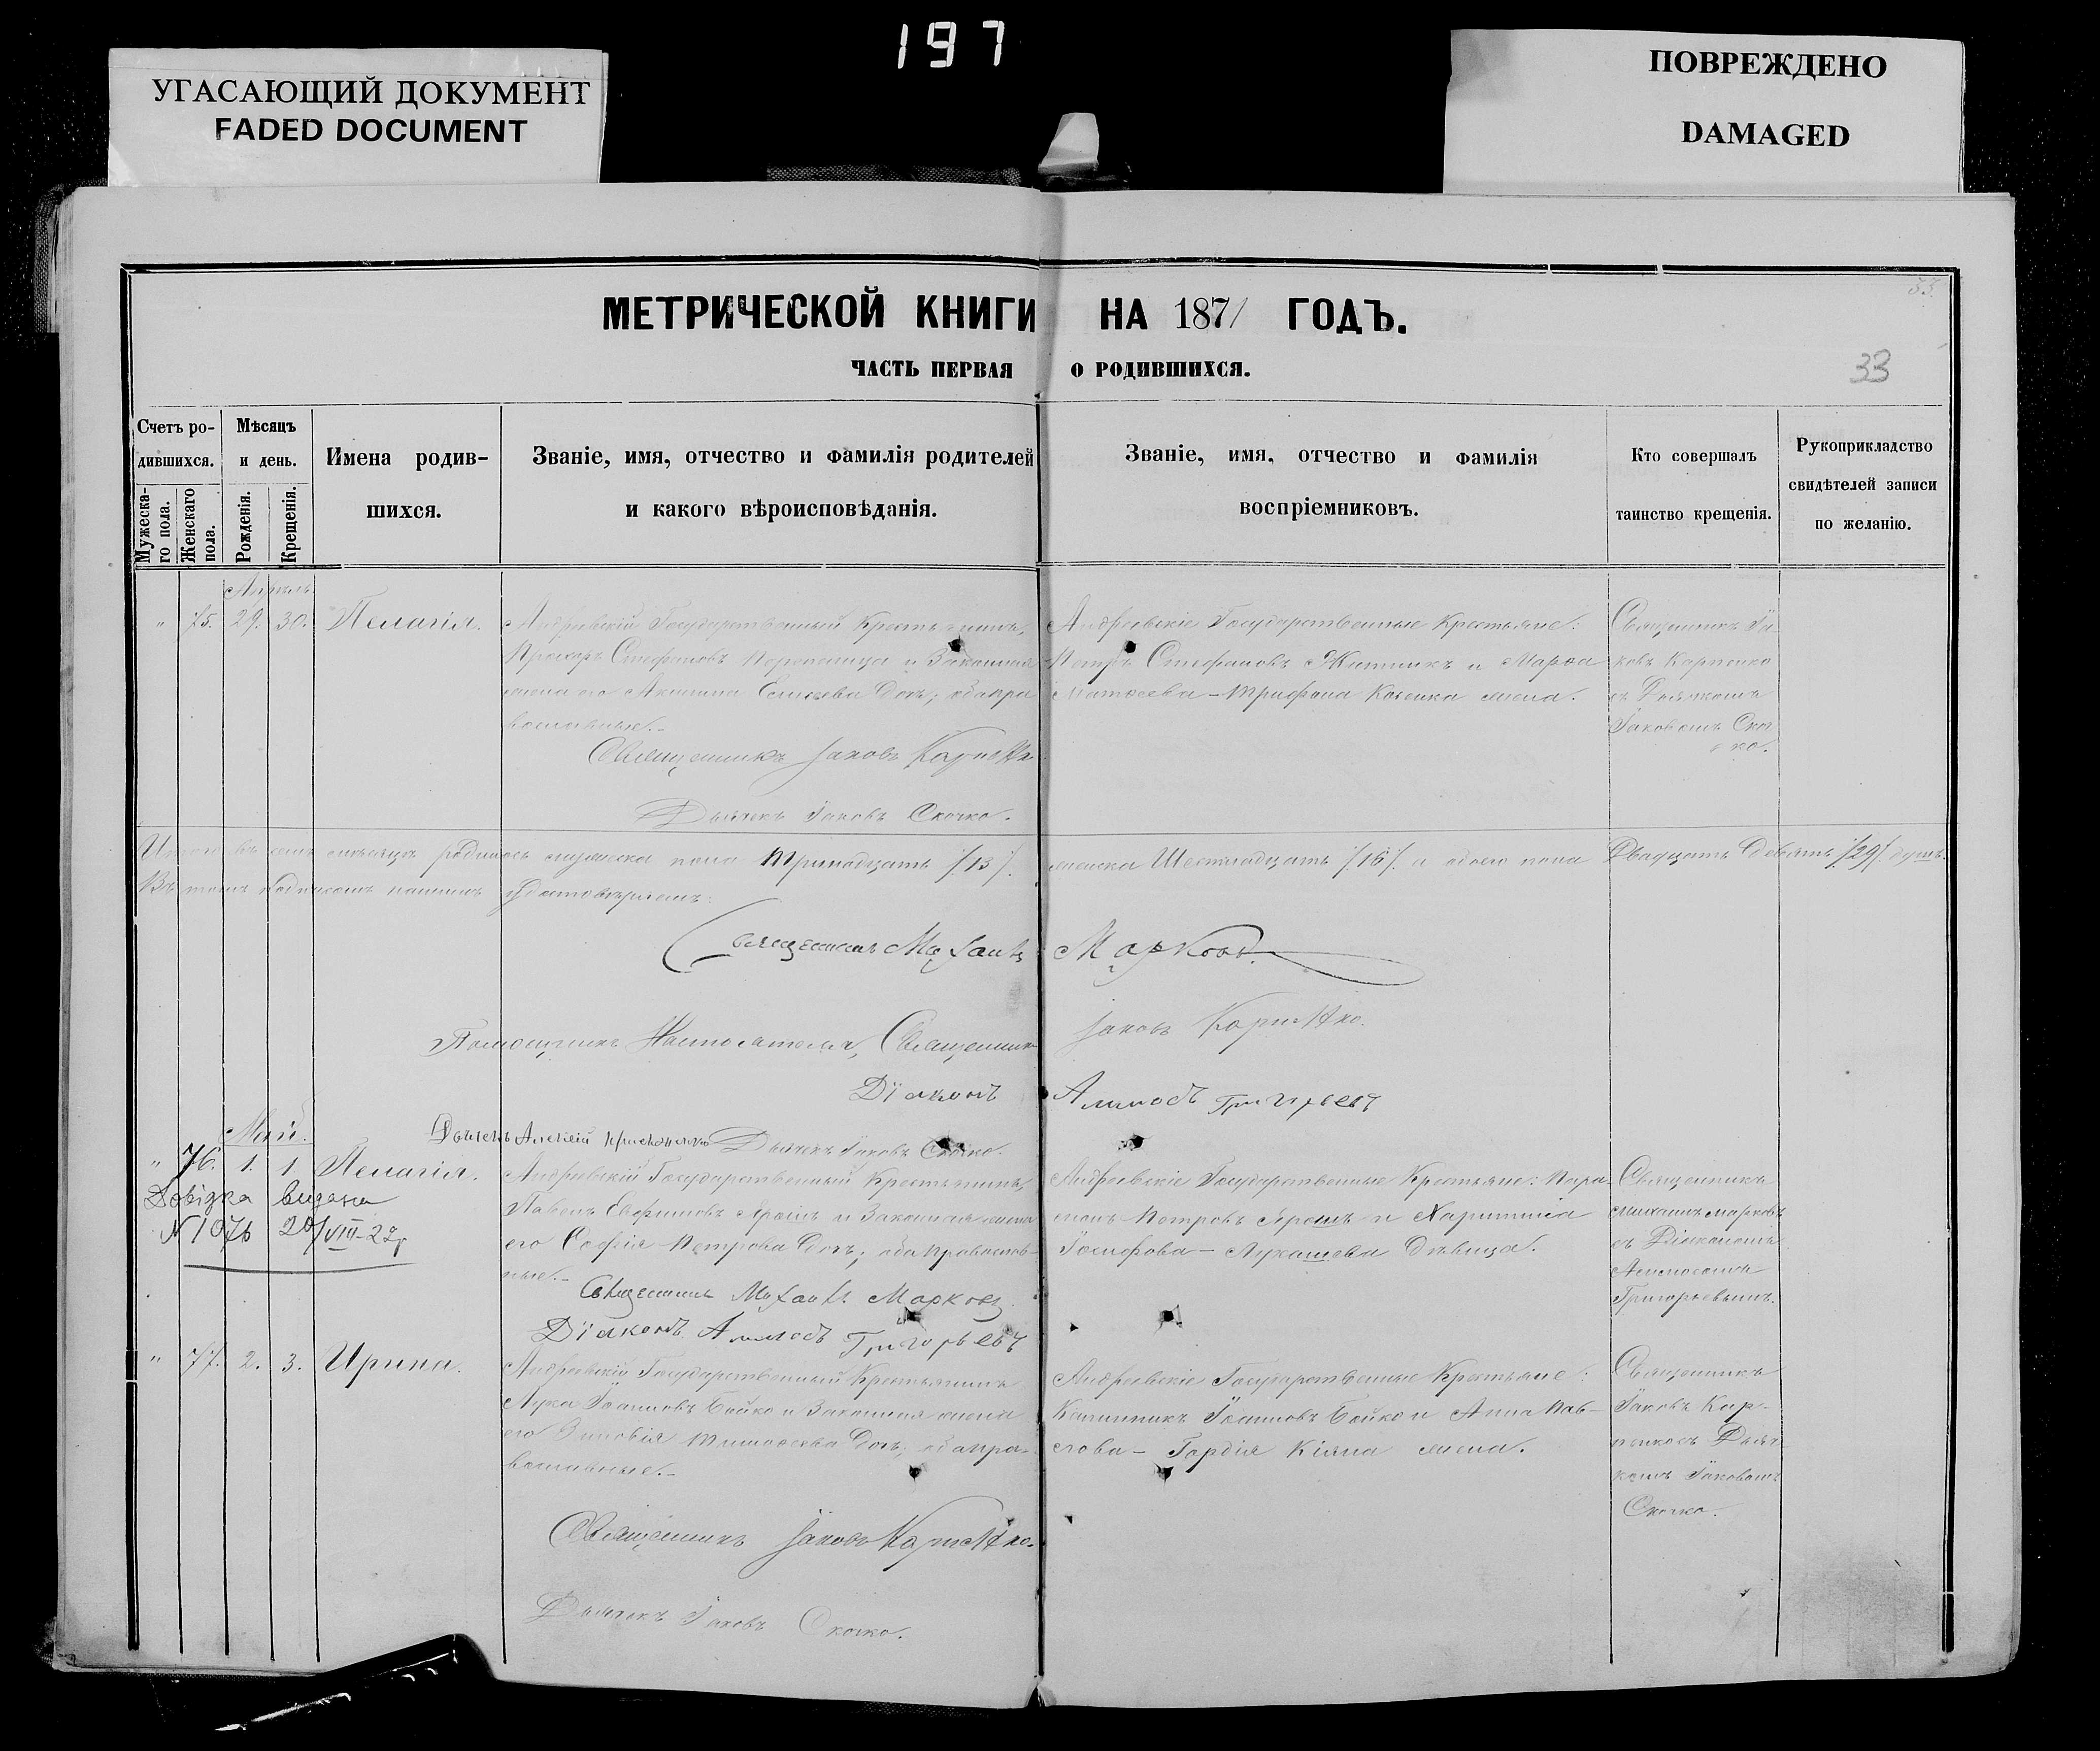 197
УГАСАЮЩИЙ ДОКУМЕНТ
FADED DOCUMENT
ПОВРЕЖДЕНО
DAMAGED
МЕТРИЧЕСКОЙ КНИГИ НА 1871 ГОДЪ.
ЧАСТЬ ПЕРВАЯ О РОДИВШИХСЯ.
33
Счетъ ро-
дившихся.
Мужеска-
го пола.
Женскаго
пола.
Мѣсяцъ
и день.
Рожденія.
Крещенія.
Имена родив-
шихся.
Званіе, имя, отчество и фамилія родителей
и какого вѣроисповѣданія.
Званіе, имя, отчество и фамилія
воспріемниковъ.
Кто совершалъ
таинство крещенія.
Рукоприкладство
свидѣтелей записи
по желанію.
Апрѣль
" 75. 29. 30. Пелагія.
Андреевскій Государственный Крестьянинъ,
Прохоръ Стефановъ Перепелица и Законная
жена его Акилина Елисеева дочь; оба пра
вославные.-
Священникъ Іаковъ Карпенко
Дьячекъ Іаковъ Скочко.
Андреевскіе Государственные Крестьяне:
Петръ Стефановъ Житникъ и Марѳа
Матѳеева - Трифона жена.
Священникъ Іа-
ковъ Карпенко
съ Дьячкомъ
Іаковомъ Скоч
ко.
Итого въ семъ мѣсяцѣ родилось мужеска пола Тринадцать /13/. женска Шестнадцать /16/. а обоего пола Двадцать девять /29/. душъ.
Въ томъ подписомъ нашимъ удостовѣряемъ:
Священникъ Михаилъ Марковъ.
Помощникъ Настоятеля, Священникъ Іаковъ Карпенко.
Діаконъ Аммосъ Григорьевъ
Дьячекъ Алексій Дьячекъ Іаковъ Скочко.
Май.
" 76. 1. 1. Пелагія.
Довідка видана
N 1076 20/VIII-22р
Андреевскій Государственный Крестьянинъ,
Павелъ Евфимовъ и Законная жена
его Софія Петрова дочь; оба православ-
ные.-
Священникъ Михаилъ Марковъ
Діаконъ Аммосъ Григорьевъ
Андреевскіе Государственные Крестьяне: Пара
монъ Петровъ и Харитина
Іосифова - Лукашева дѣвица.
Священникъ
Михаилъ Марковъ
съ Діакономъ
Аммосомъ
Григорьевымъ.
" 77. 2. 3. Ирина.
Андреевскій Государственный Крестьянинъ
Лука Іоанновъ Бойко и Законная жена
его Зиновія Тимоѳеева дочь; оба пра-
вославные.-
Священникъ Іаковъ Карпенко.
Дьячекъ Іаковъ Скочко.
Андреевскіе Государственные Крестьяне:
Каллиникъ Іоанновъ Бойко и Анна Пав-
лова - Гордія Кіяна жена.
Священникъ
Іаковъ Кар-
пенко съ Дьяч
комъ Іаковомъ
Скочко.